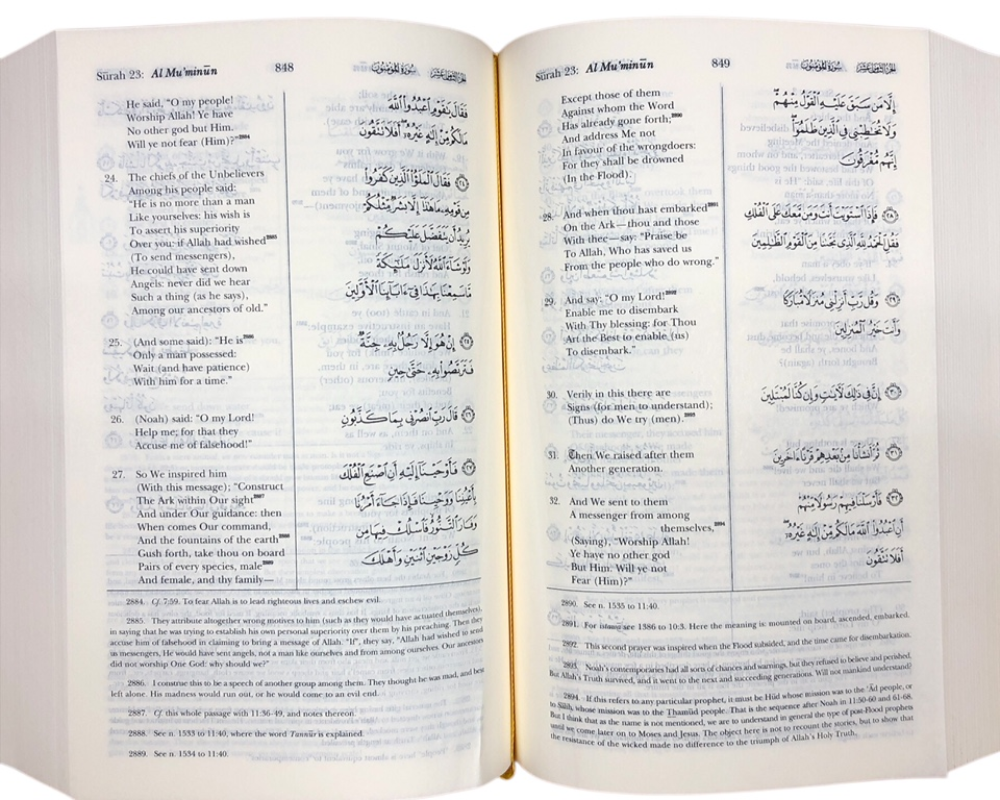 Sūrah 23: Al Mu'minūn
848
He said, "O my people!
Worship Allah! Ye have
No other god but Him.
Will ye not fear (Him)?"2884
24. The chiefs of the Unbelievers
Among his people said:
"He is no more than a man
Like yourselves: his wish is
To assert his superiority
Over you: if Allah had wished2885
(To send messengers),
He could have sent down
Angels: never did we hear
Such a thing (as he says),
Among our ancestors of old."
25. (And some said): "He is2886
Only a man possessed:
Wait (and have patience)
With him for a time."
26. (Noah) said: "O my Lord!
Help me: for that they
Accuse me of falsehood!"
27. So We inspired him
(With this message); "Construct
The Ark within Our sight2887
And under Our guidance: then
When comes Our command,
And the fountains of the earth2888
Gush forth, take thou on board
Pairs of every species, male2889
And female, and thy family—
فَقَالَ يَٰقَوْمِ ٱعْبُدُوا۟ ٱللَّهَ
مَالَكُم مِّنْ إِلَٰهٍ غَيْرُهُۥٓ أَفَلَا تَتَّقُونَ
﴿٢٤﴾ فَقَالَ ٱلْمَلَؤُا۟ ٱلَّذِينَ كَفَرُوا۟
مِن قَوْمِهِۦ مَا هَٰذَآ إِلَّا بَشَرٌ مِّثْلُكُمْ
يُرِيدُ أَن يَتَفَضَّلَ عَلَيْكُمْ
وَلَوْ شَآءَ ٱللَّهُ لَأَنزَلَ مَلَٰٓئِكَةً
مَّا سَمِعْنَا بِهَٰذَا فِىٓ ءَابَآئِنَا ٱلْأَوَّلِينَ
﴿٢٥﴾ إِنْ هُوَ إِلَّا رَجُلٌۢ بِهِۦ جِنَّةٌ
فَتَرَبَّصُوا۟ بِهِۦ حَتَّىٰ حِينٍ
﴿٢٦﴾ قَالَ رَبِّ ٱنصُرْنِى بِمَا كَذَّبُونِ
﴿٢٧﴾ فَأَوْحَيْنَآ إِلَيْهِ أَنِ ٱصْنَعِ ٱلْفُلْكَ
بِأَعْيُنِنَا وَوَحْيِنَا فَإِذَا جَآءَ أَمْرُنَا
وَفَارَ ٱلتَّنُّورُ فَٱسْلُكْ فِيهَا مِن
كُلٍّ زَوْجَيْنِ ٱثْنَيْنِ وَأَهْلَكَ
2884. Cf. 7:59. To fear Allah is to lead righteous lives and eschew evil.
2885. They attribute altogether wrong motives to him (such as they would have actuated themselves),
in saying that he was trying to establish his own personal superiority over them by his preaching. Then they
accuse him of falsehood in claiming to bring a message of Allah. "If", they say, "Allah had wished to send
us messengers, He would have sent angels, not a man like ourselves and from among ourselves. Our ancestors
did not worship One God: why should we?"
2886. I construe this to be a speech of another group among them. They thought he was mad, and best
left alone. His madness would run out, or he would come to an evil end.
2887. Cf. this whole passage with 11:36-49, and notes thereon.
2888. See n. 1533 to 11:40, where the word Tannūr is explained.
2889. See n. 1534 to 11:40.
Sūrah 23: Al Mu'minūn
849
Except those of them
Against whom the Word
Has already gone forth;2890
And address Me not
In favour of the wrongdoers:
For they shall be drowned
(In the Flood).
28. And when thou hast embarked2891
On the Ark—thou and those
With thee—say: "Praise be
To Allah, Who has saved us
From the people who do wrong."
29. And say: "O my Lord!2892
Enable me to disembark
With Thy blessing: for Thou
Art the Best to enable (us)
To disembark."
30. Verily in this there are
Signs (for men to understand);
(Thus) do We try (men).2893
31. Then We raised after them
Another generation.
32. And We sent to them
A messenger from among
themselves,2894
(Saying), "Worship Allah!
Ye have no other god
But Him. Will ye not
Fear (Him)?"
إِلَّا مَن سَبَقَ عَلَيْهِ ٱلْقَوْلُ مِنْهُمْ
وَلَا تُخَٰطِبْنِى فِى ٱلَّذِينَ ظَلَمُوٓا۟
إِنَّهُم مُّغْرَقُونَ
﴿٢٨﴾ فَإِذَا ٱسْتَوَيْتَ أَنتَ وَمَن مَّعَكَ عَلَى ٱلْفُلْكِ
فَقُلِ ٱلْحَمْدُ لِلَّهِ ٱلَّذِى نَجَّىٰنَا مِنَ ٱلْقَوْمِ ٱلظَّٰلِمِينَ
﴿٢٩﴾ وَقُل رَّبِّ أَنزِلْنِى مُنزَلًا مُّبَارَكًا
وَأَنتَ خَيْرُ ٱلْمُنزِلِينَ
﴿٣٠﴾ إِنَّ فِى ذَٰلِكَ لَءَايَٰتٍ وَإِن كُنَّا لَمُبْتَلِينَ
﴿٣١﴾ ثُمَّ أَنشَأْنَا مِنۢ بَعْدِهِمْ قَرْنًا ءَاخَرِينَ
﴿٣٢﴾ فَأَرْسَلْنَا فِيهِمْ رَسُولًا مِّنْهُمْ
أَنِ ٱعْبُدُوا۟ ٱللَّهَ مَا لَكُم مِّنْ إِلَٰهٍ غَيْرُهُۥٓ
أَفَلَا تَتَّقُونَ
2890. See n. 1535 to 11:40.
2891. For istawā see 1386 to 10:3. Here the meaning is: mounted on board, ascended, embarked.
2892. This second prayer was inspired when the Flood subsided, and the time came for disembarkation.
2893. Noah's contemporaries had all sorts of chances and warnings, but they refused to believe and perished.
But Allah's Truth survived, and it went to the next and succeeding generations. Will not mankind understand?
2894. If this refers to any particular prophet, it must be Hūd whose mission was to the 'Ād people, or
to Ṣāliḥ, whose mission was to the Thamūd people. That is the sequence after Noah in 11:50-60 and 61-68.
But I think that as the name is not mentioned, we are to understand in general the type of post-Flood prophets
until we come later on to Moses and Jesus. The object here is not to recount the stories, but to show that
the resistance of the wicked made no difference to the triumph of Allah's Holy Truth.